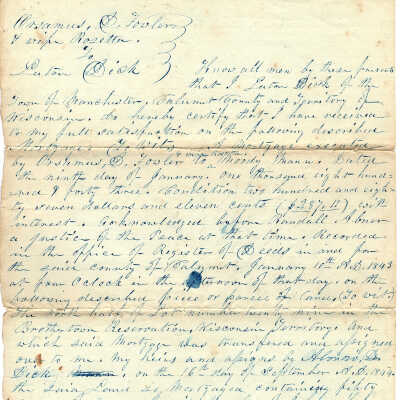 Orsamus, D. Fowler
& wife Rosetta.
To
Luton Dick
Know all men by these presents
that I Luton Dick of the
Town of Manchester, Calumet County and Territory of
Wisconsin. do hereby certify that I have received
to my full satisfaction on the following described
Mortgage. To Wit. A Mortgage executed
by Orsamus, D. Fowler to Moody Mann. Dated
the ninth day of January. One thousand eight hun-
dred & forty three. Condition two hundred and eigh-
ty seven dollars and eleven cents ($287.11) with
interest. Acknowledged before Randall Abner
a justice of the Peace at that time Recorded
in the office of Register of Deeds in and for
the said county of Calumet, January 10th A.D. 1843
at four O clock in the afternoon of that day. on the
following described piece or parcel of land, To wit.
The half of Lot number in the
Brothertown Reservation, Wisconsin Territory. And
which said Mortgage was transfered and assigned
over to me. My heirs and assigns by
Dick on the 16th day of September A.D. 184
the said Land so Mortgaged containing fifty